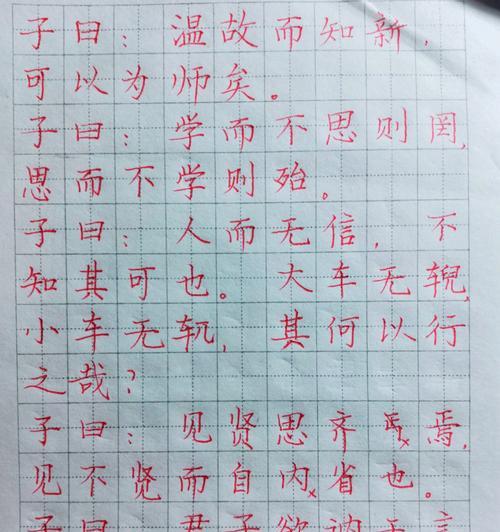 子曰：温故而知新，
可以为师矣。
子曰：学而不思则罔，
思而不学则殆。
子曰：人而无信，不
知其可也。大车无輗，
小车无軏，其何以行
之哉？
子曰：见贤思齐焉，
见不贤而自内省也。
子曰 君子欲讷于言